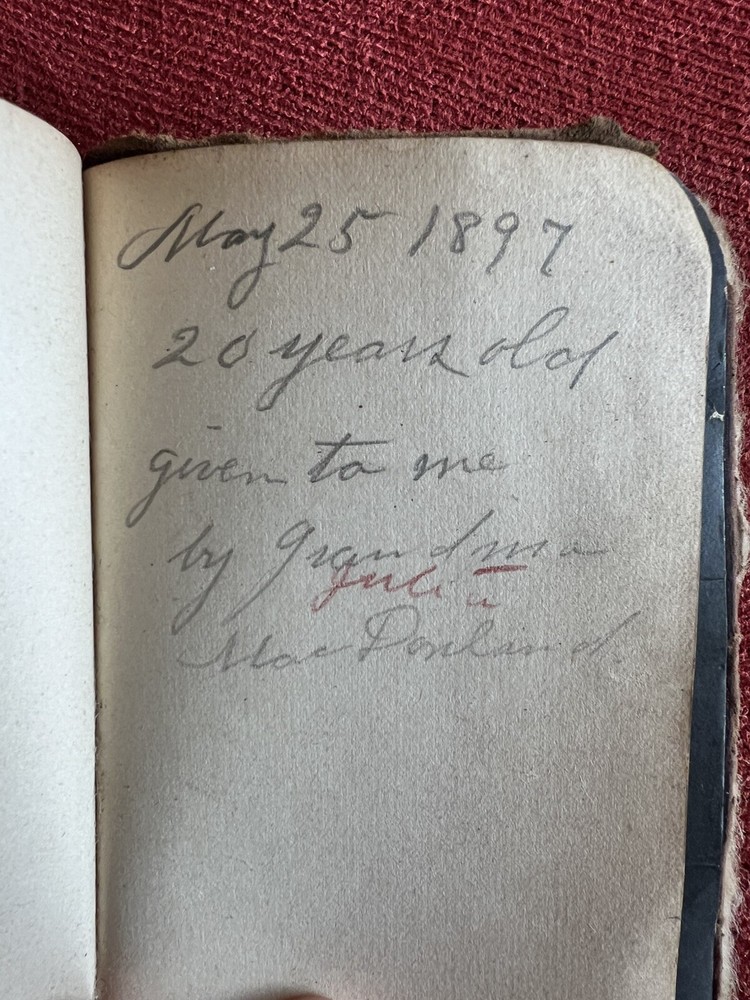 May 25 1897
20 years old
given to me
by Grandma
Julia
MacDonland.